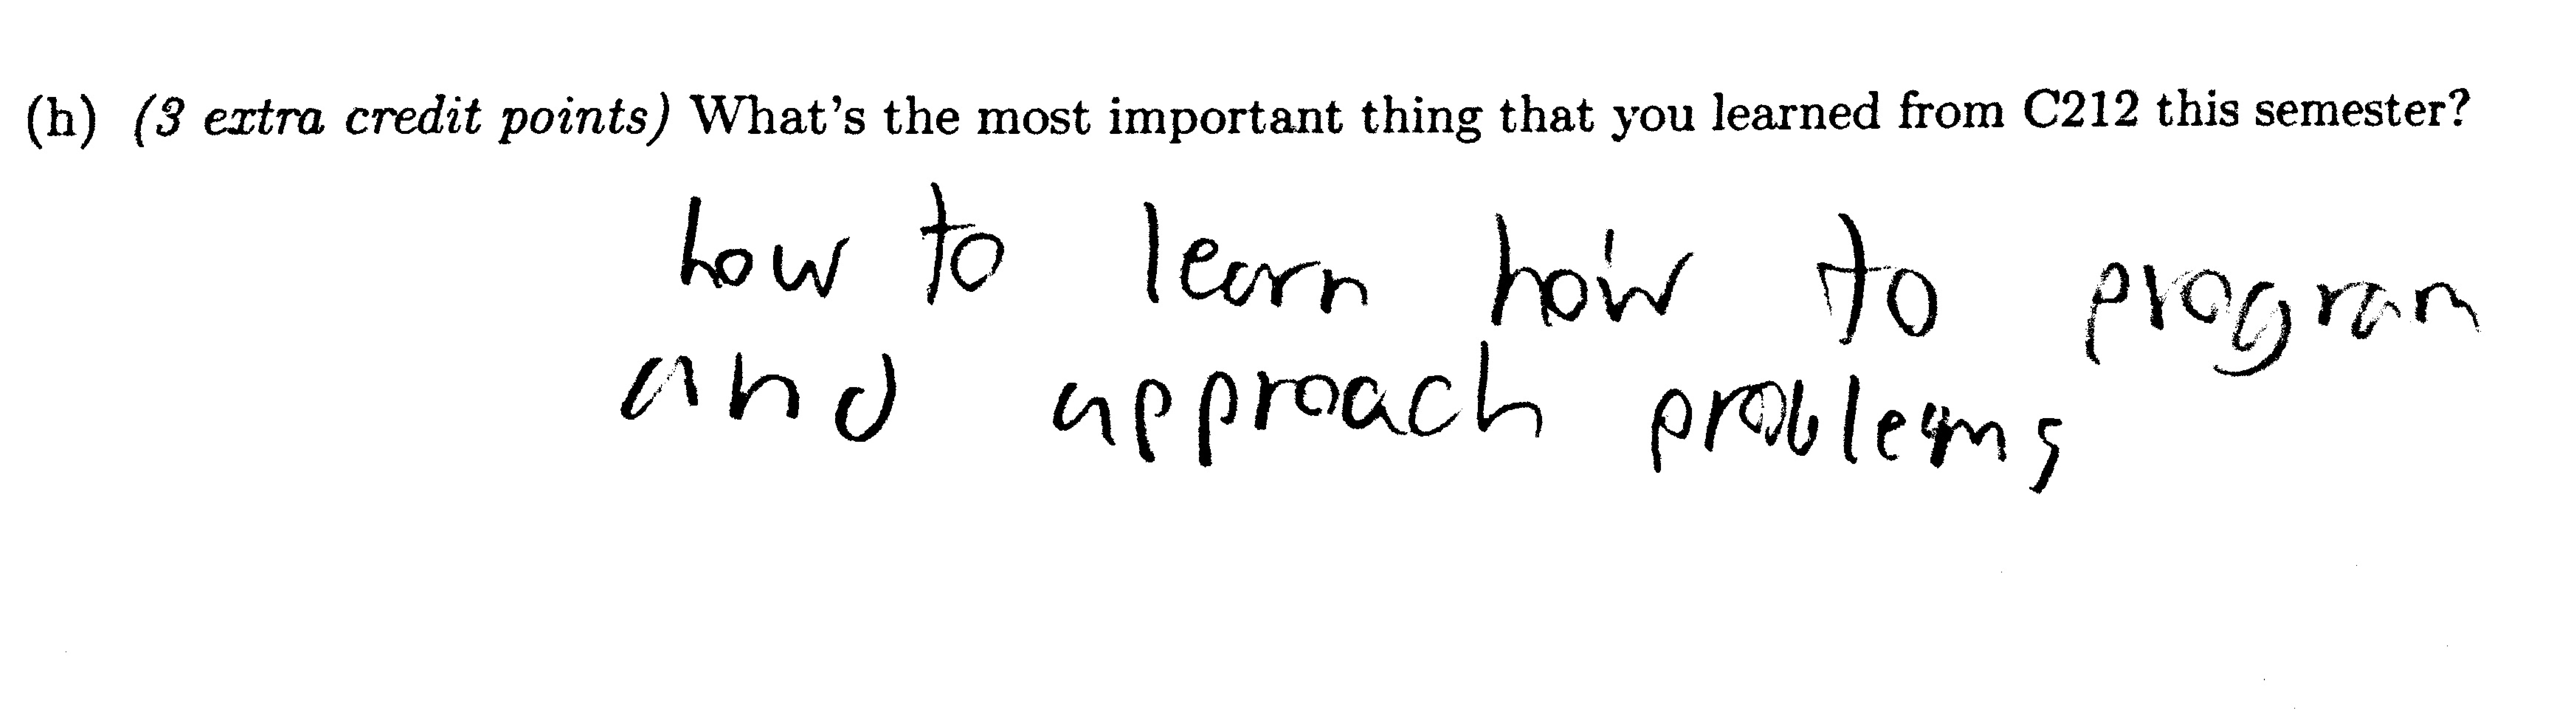 (h) (3 extra credit points) What's the most important thing that you learned from C212 this semester?
how to learn how to program
and approach problems